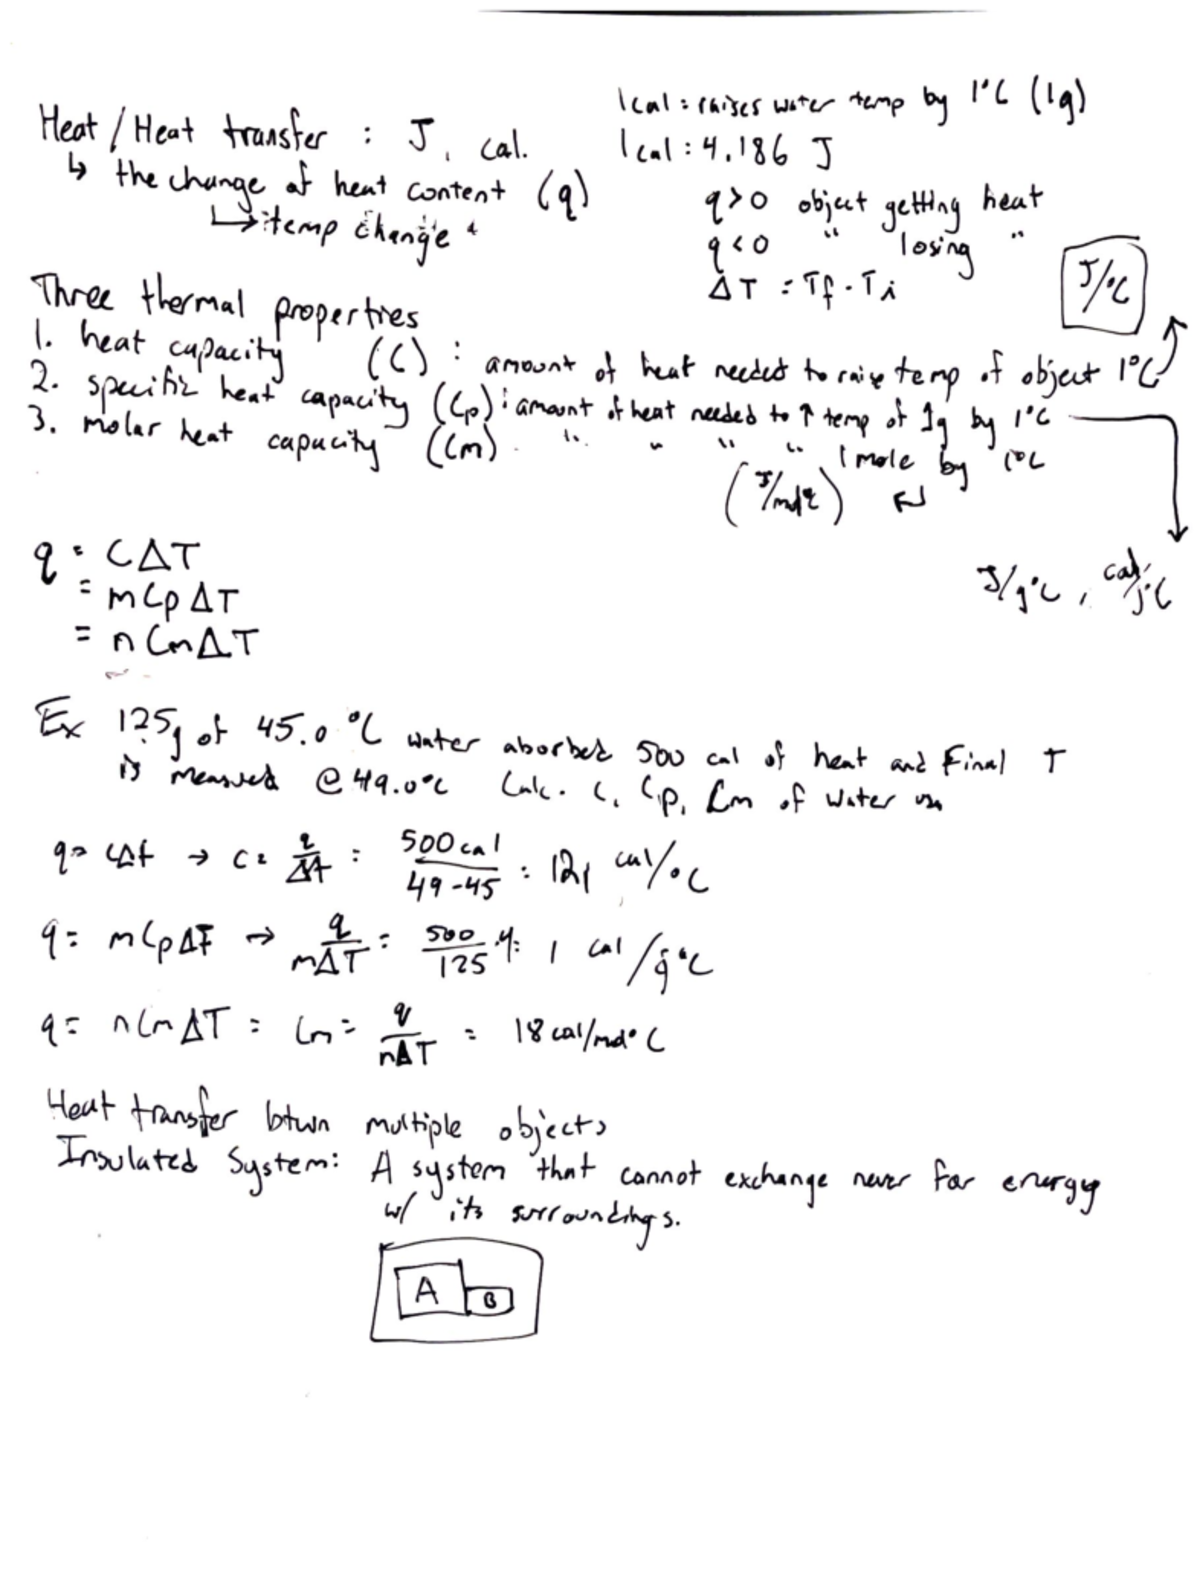 1cal : raises water temp by 1°C (1g)
Heat / Heat transfer : J, cal.
1cal : 4.186 J
↳ the change of heat content (q)
↳ temp change
q > 0 object getting heat
q < 0 " losing "
ΔT = Tf - Ti
J/°C
Three thermal properties
1. heat capacity (C) : amount of heat needed to raise temp of object 1°C
2. specific heat capacity (Cp) : amount of heat needed to ↑ temp of 1g by 1°C
3. molar heat capacity (Cm) " " " " 1 mole by 1°C
(J/mol°C)
J/g°C , cal/g°C
q = CΔT
= mCpΔT
= nCmΔT
Ex 125g of 45.0 °C water aborbed 500 cal of heat and Final T
is measured @ 49.0°C Calc. C, Cp, Cm of water
q = CΔt → C = q/Δt = 500 cal/49-45 = 121 cal/°C
q = mCpΔT → q/mΔT = 500/125·4 = 1 cal/g°C
q = nCmΔT = Cm = q/nΔT = 18 cal/mol°C
Heat transfer btwn multiple objects
Insulated System: A system that cannot exchange never for energy
w/ its surroundings.
A B